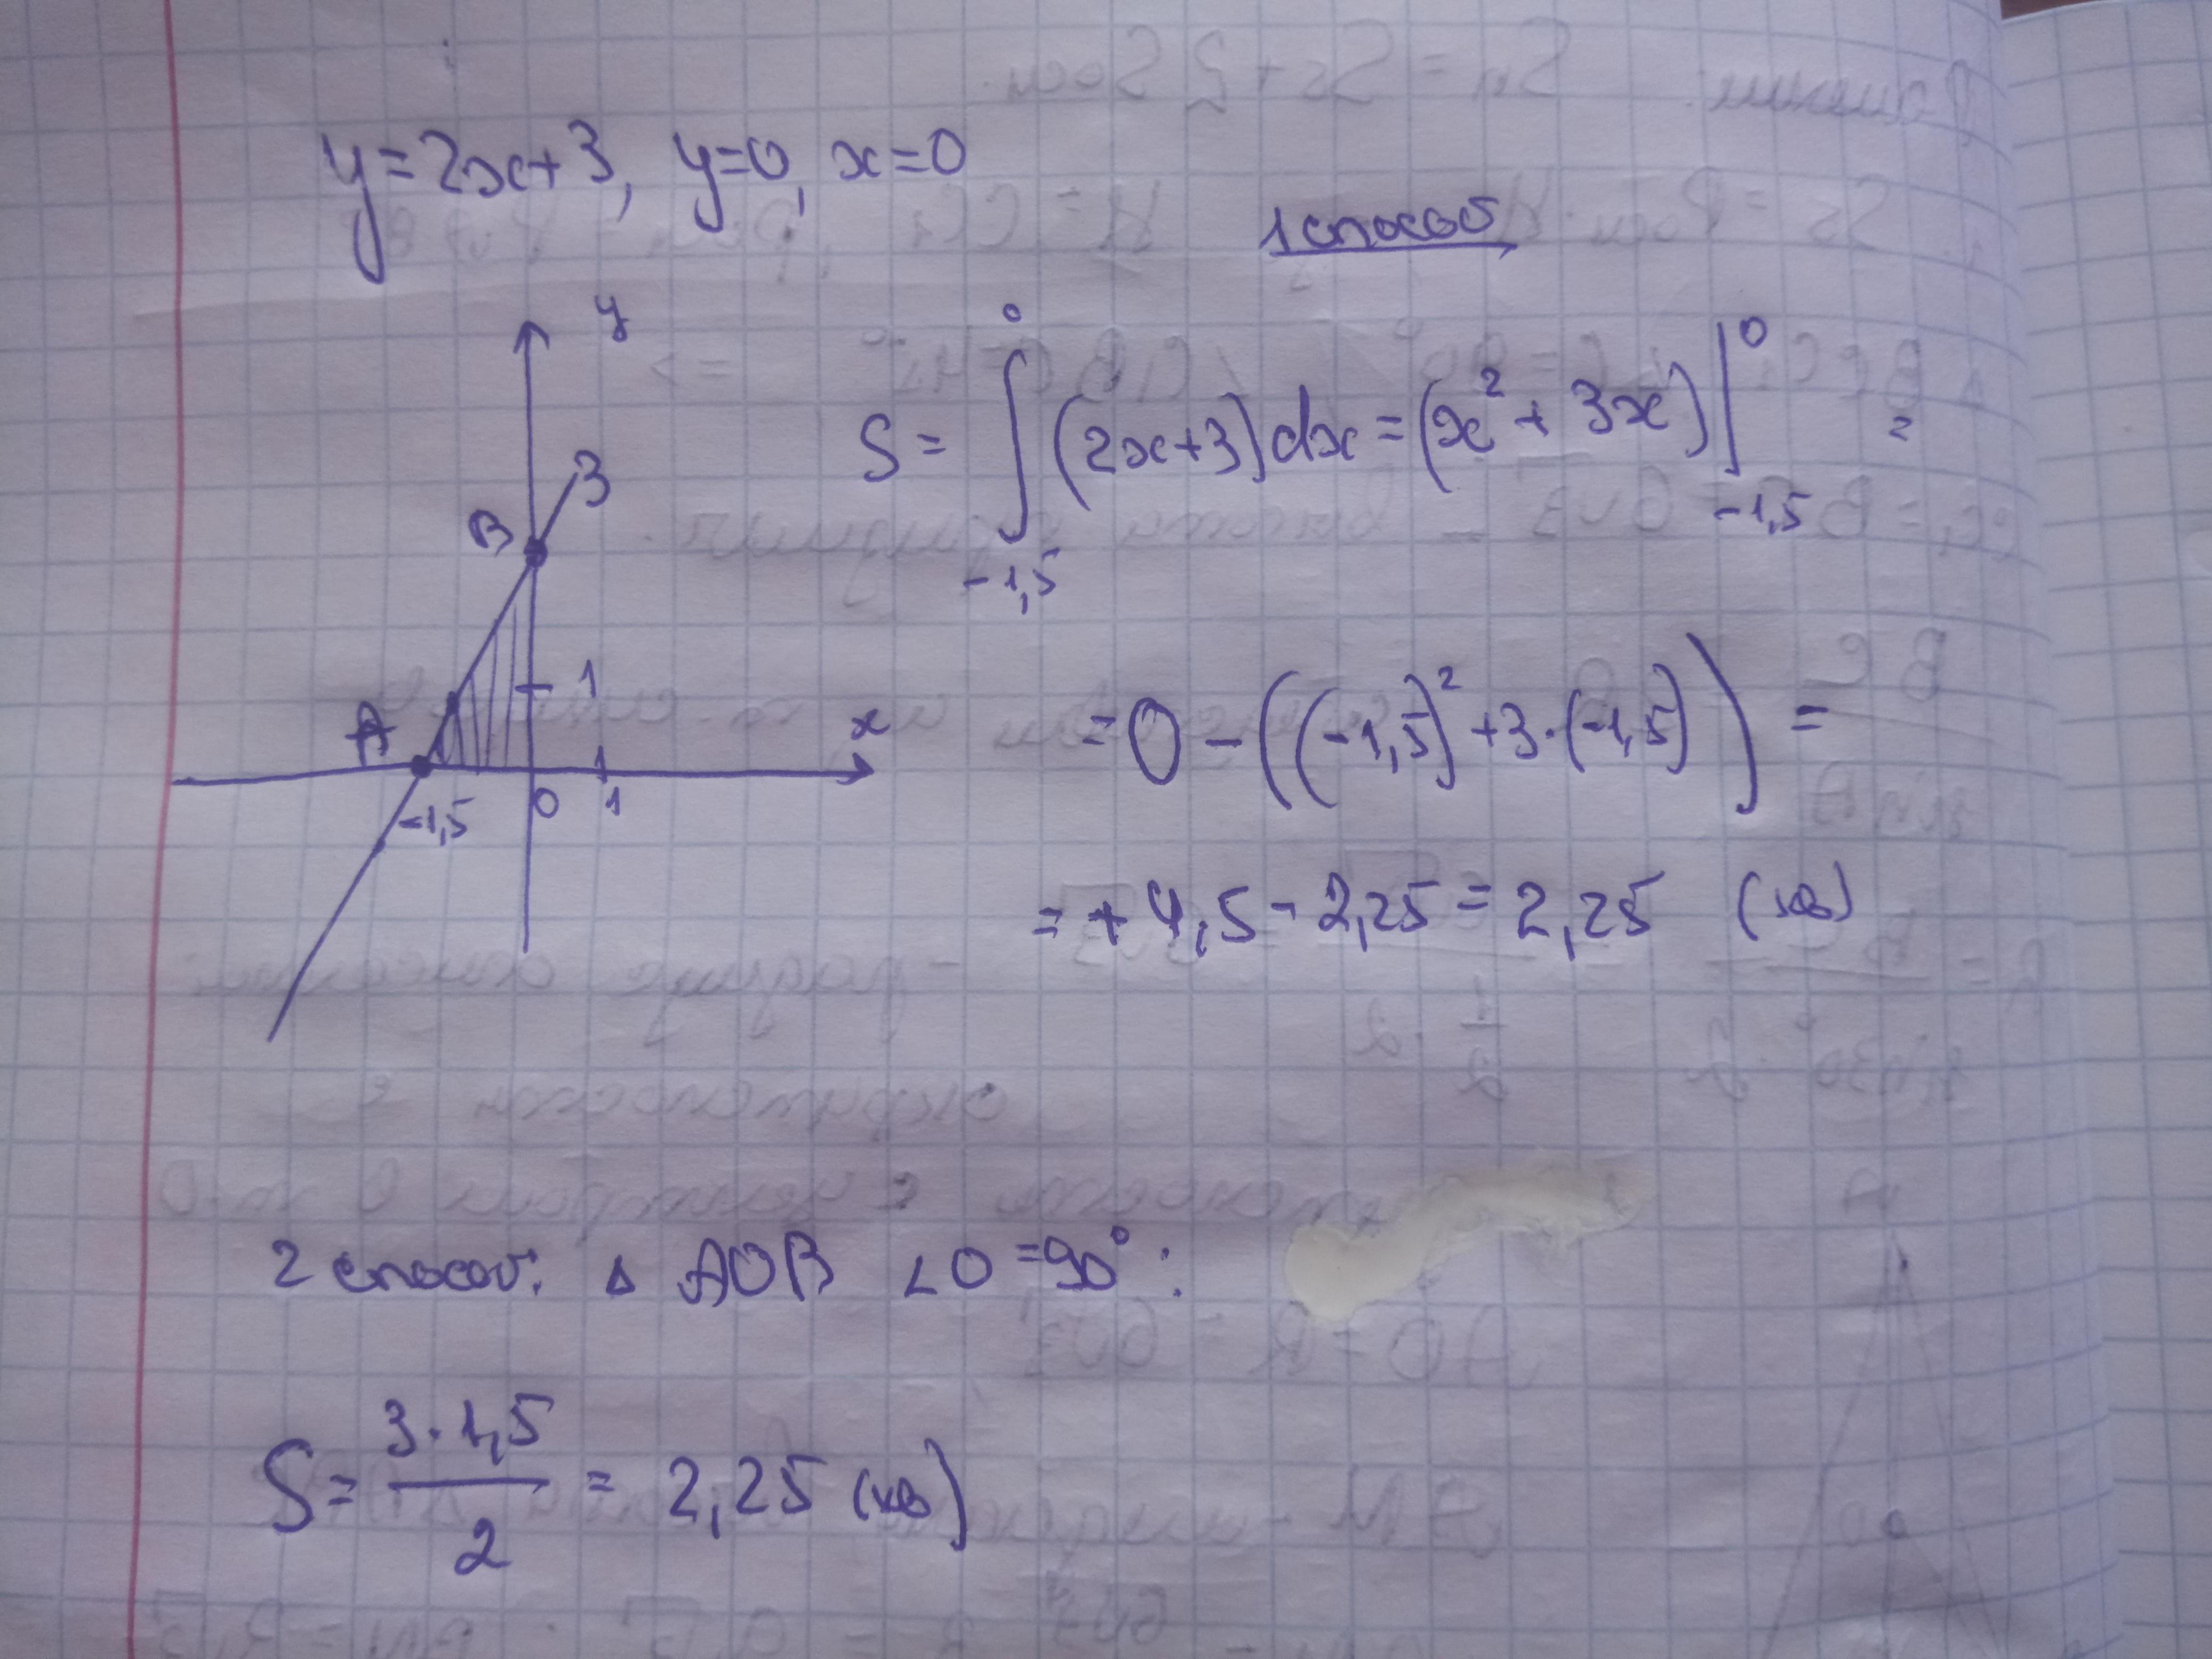 y=2x+3, y=0, x=0
1 способ
y
3
B
1
A
x
-1,5
0
1
S = ∫₋₁,₅⁰ (2x+3)dx = (x²+3x)|₋₁,₅⁰ =
= 0 - ((-1,5)² + 3·(-1,5)) =
= + 4,5 - 2,25 = 2,25 (кв)
2 способ: Δ AOB ∠O = 90°:
S = 3·1,5/2 = 2,25 (кв)